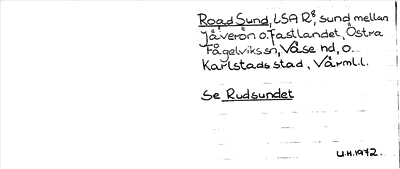 Road Sund, LSA R8, sund mellan
Jäverön o. fastlandet, Östra
Fågelviks sn, Väse hd, o.
Karlstads stad, Värml.l.
Se Rudsundet
U.H. 1972.